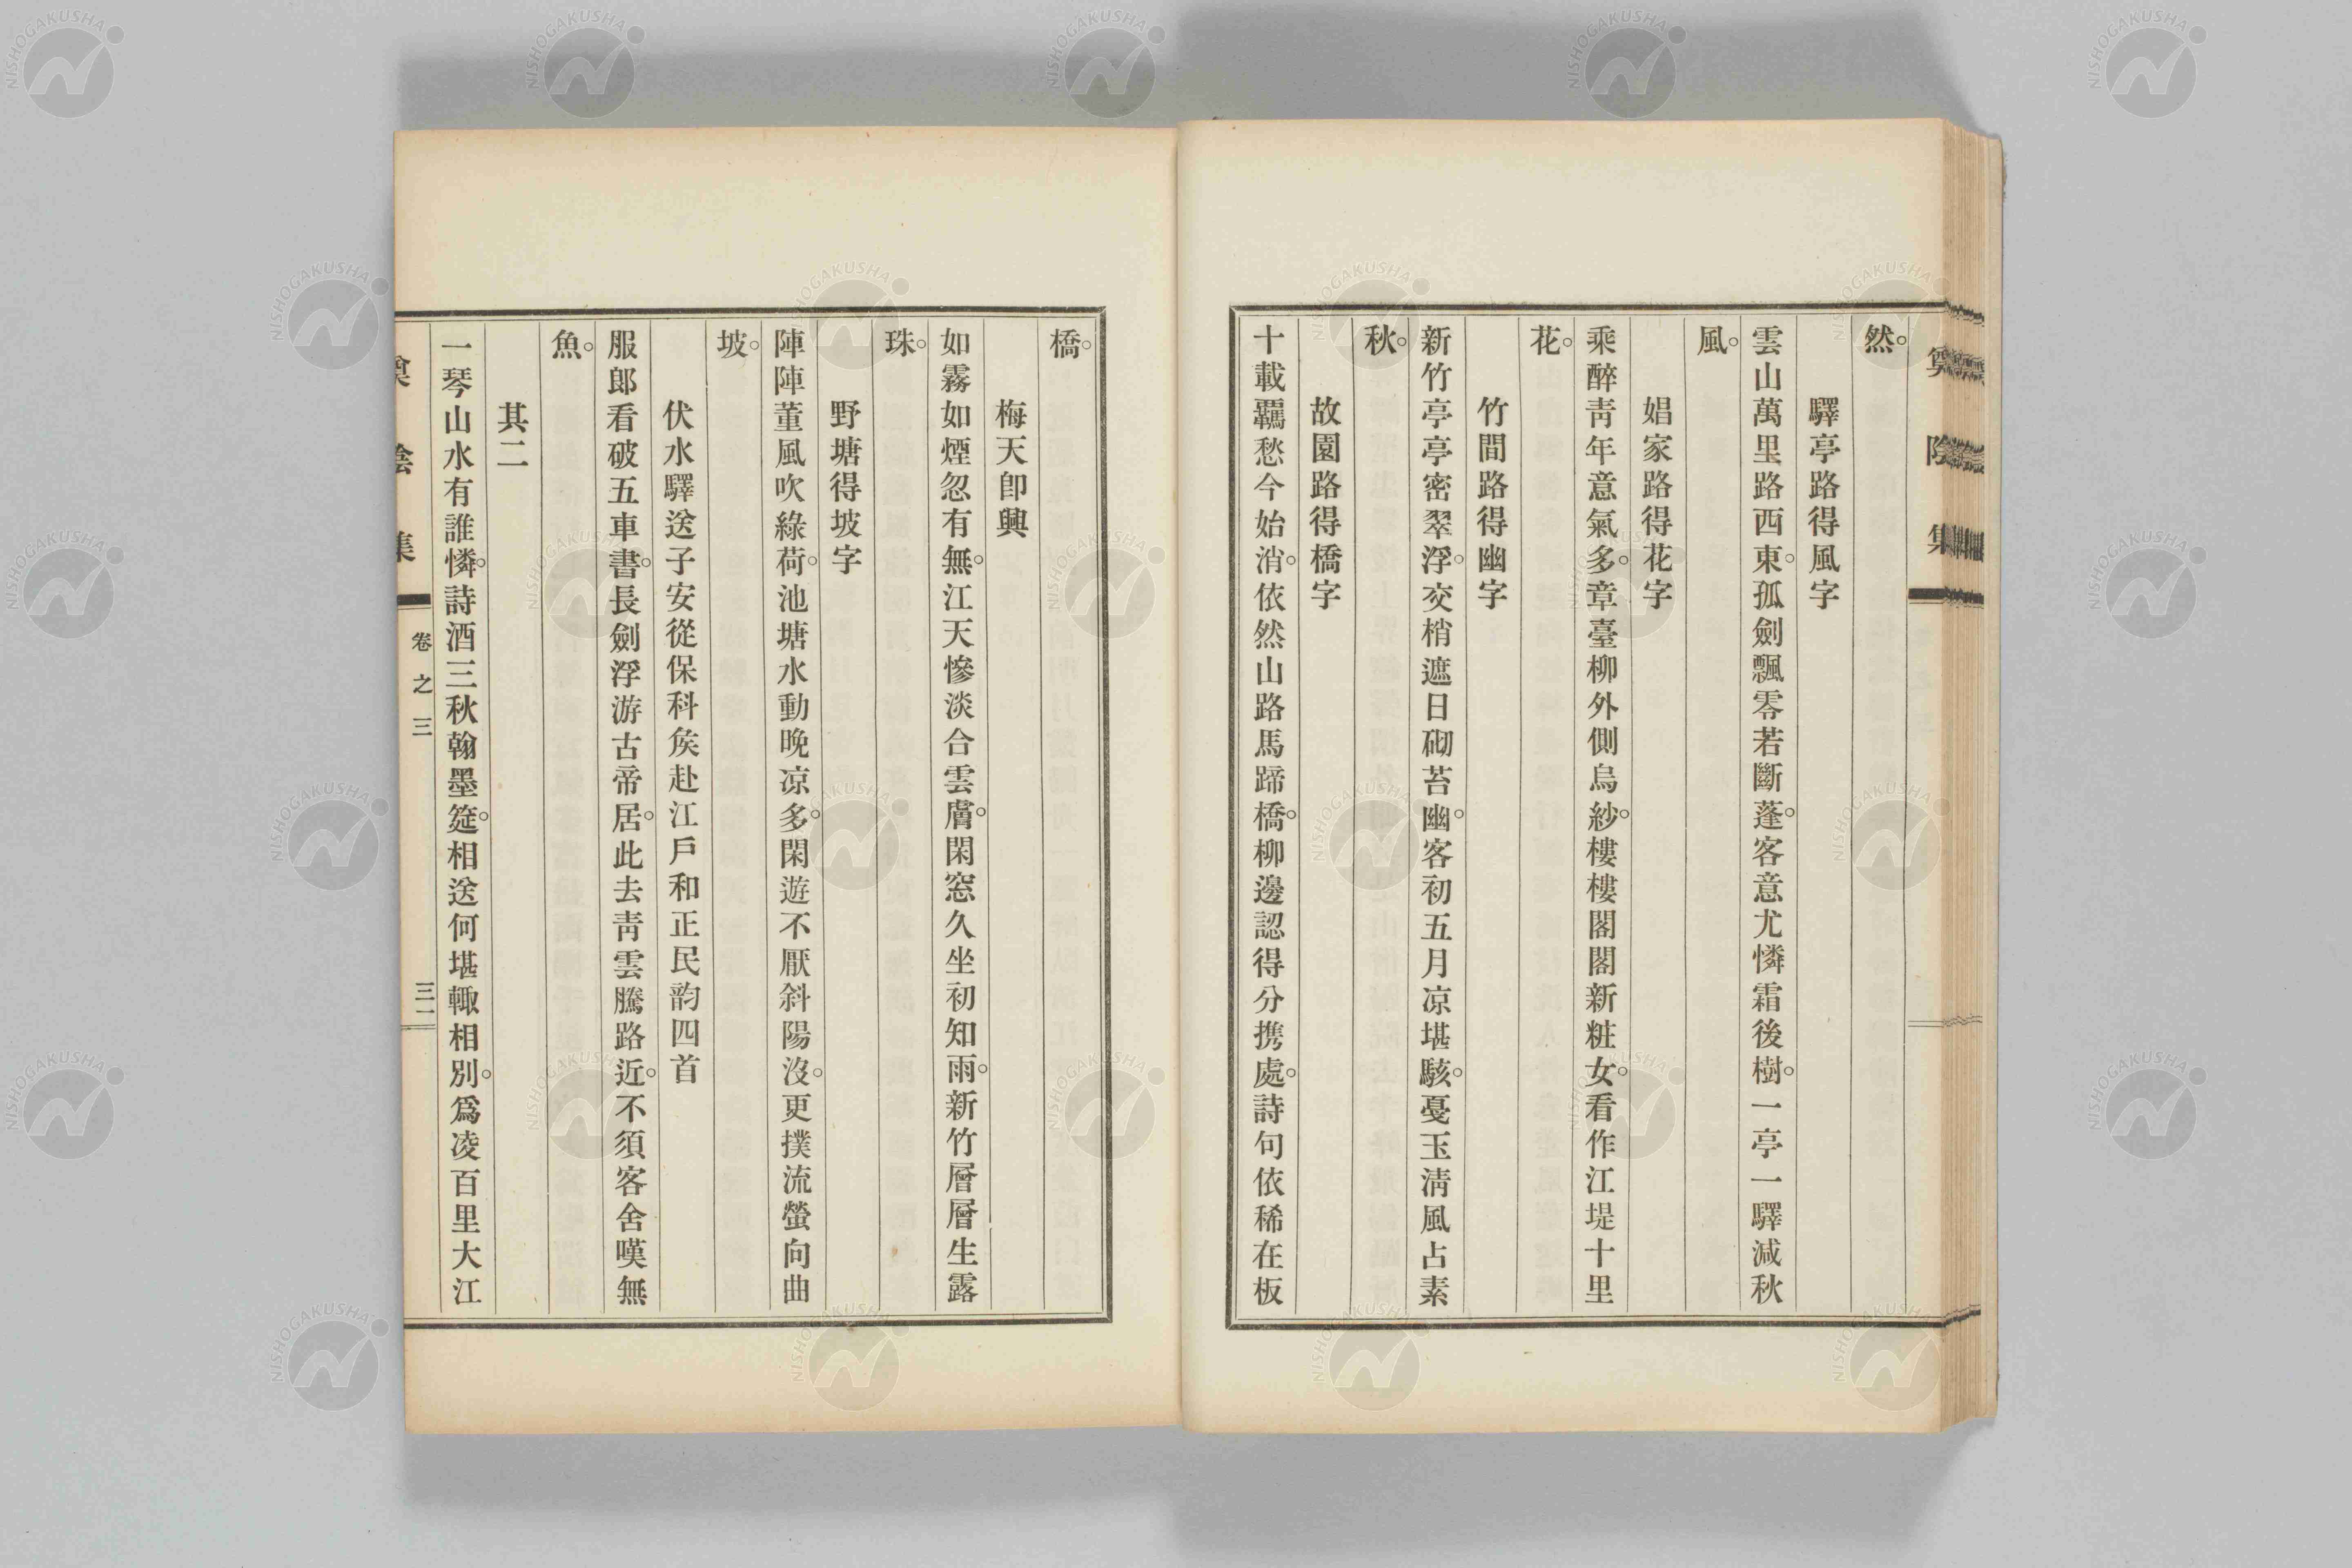 然。
驛亭路得風字
雲山萬里路西東。孤劍飄零若斷蓬。客意尤憐霜後樹。一亭一驛減秋
風。
娼家路得花字
乘醉靑年意氣多。章臺柳外側烏紗。樓樓閣閣新粧女。看作江堤十里
花。
竹間路得幽字
新竹亭亭密翠浮。交梢遮日砌苔幽。客初五月凉堪駭。戞玉淸風占素
秋。
故園路得橋字
十載羈愁今始消。依然山路馬蹄橋。柳邊認得分携處。詩句依稀在板
橋。
梅天卽興
如霧如煙忽有無。江天慘淡合雲膚。閑窓久坐初知雨。新竹層層生露
珠。
野塘得坡字
陣陣董風吹綠荷。池塘水動晚凉多。閑遊不厭斜陽沒。更撲流螢向曲
坡。
伏水驛送子安從保科矦赴江戶和正民韵四首
服郎看破五車書。長劍浮游古帝居。此去靑雲騰路近。不須客舍嘆無
魚。
其二
一琴山水有誰憐。詩酒三秋翰墨筵。相送何堪輙相別。爲凌百里大江
奠陰集
卷之三
三一
奠陰集
NISHOGAKUSHA